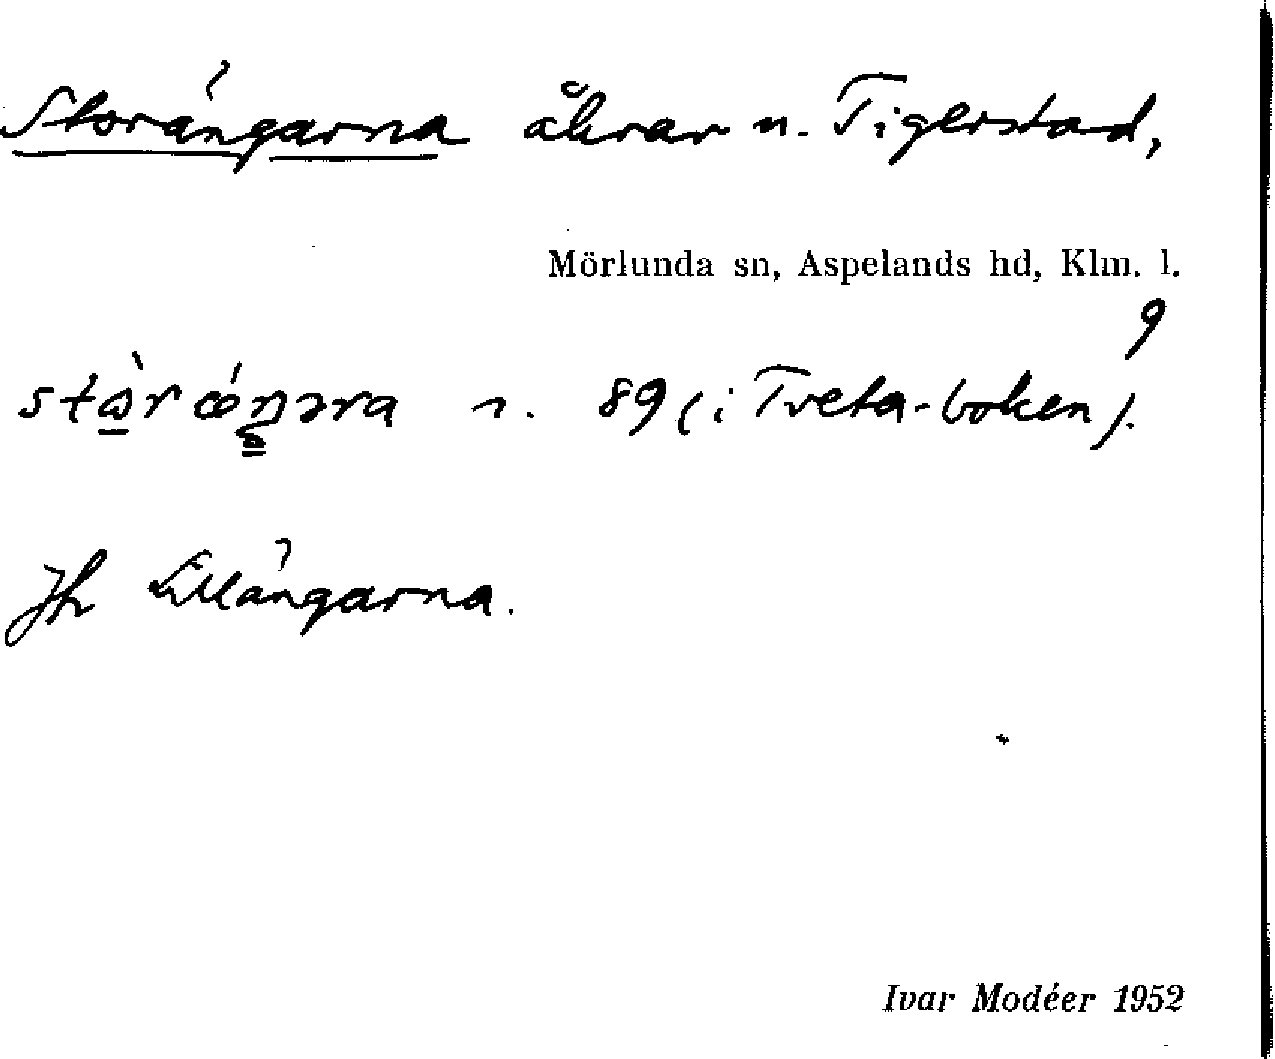 Storängarna åkrar n. Tigerstad,
Mörlunda sn, Aspelands hd, Klm. l.
9
n. 89 (i Tveta-boken).
Jfr Lillängarna.
Ivar Modéer 1952